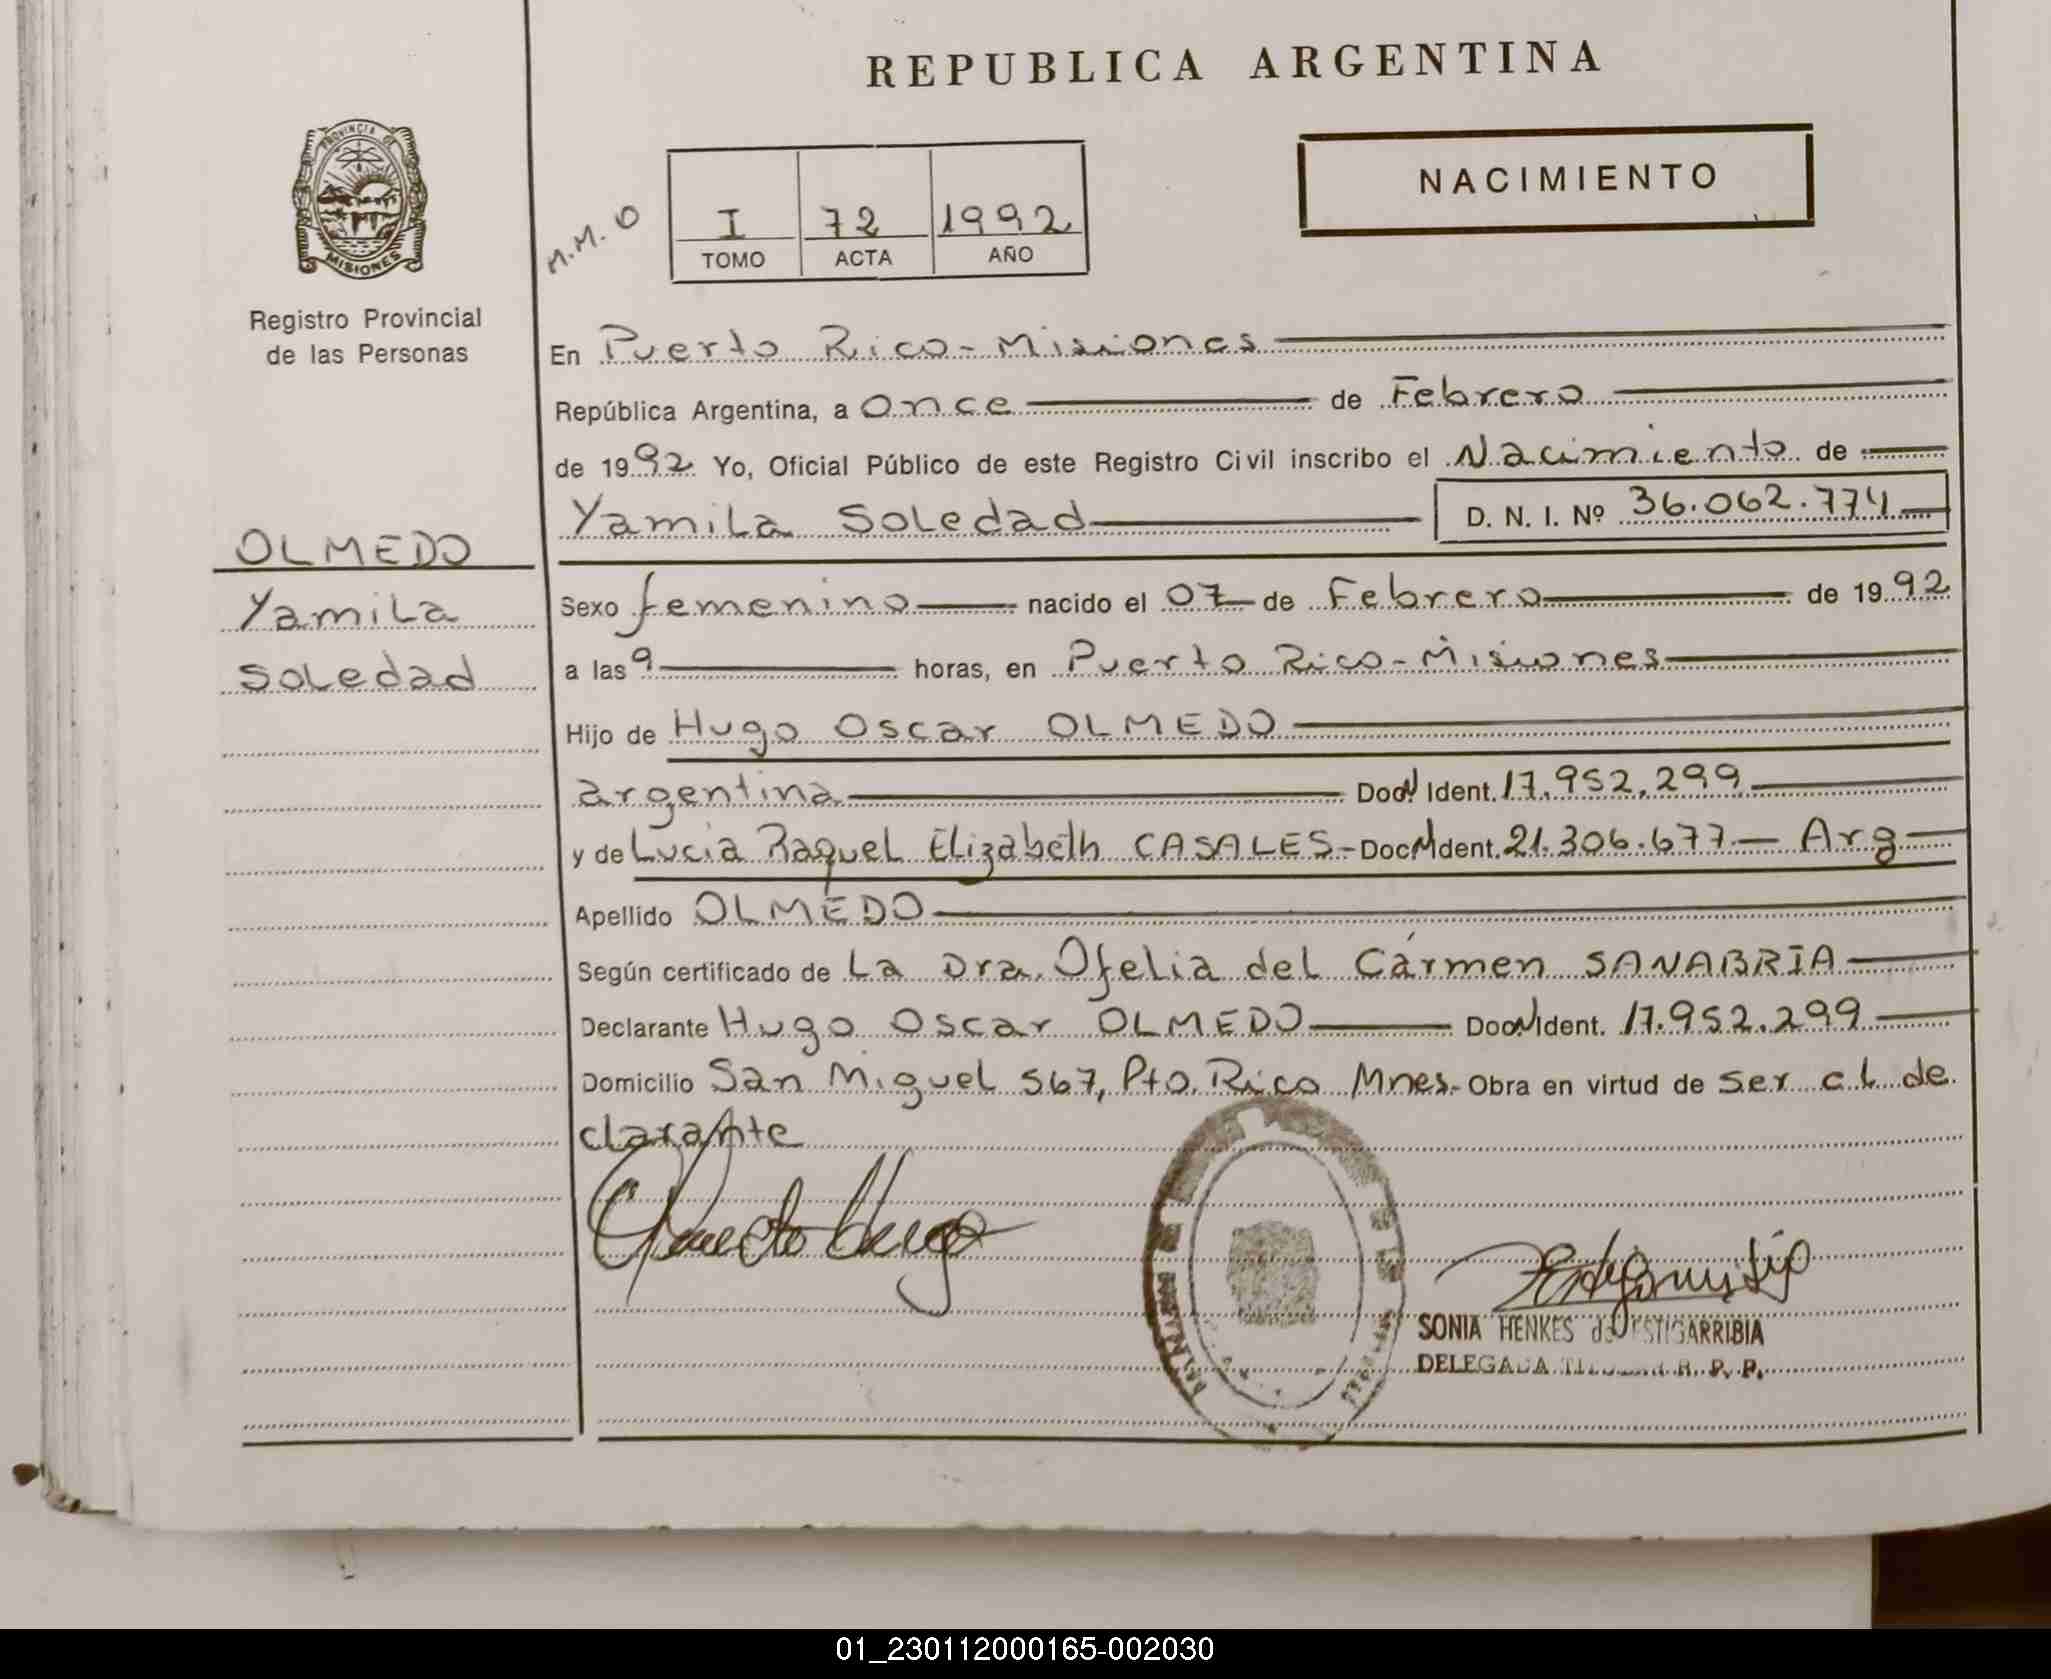 REPUBLICA ARGENTINA
PROVINCIA DE
MISIONES
Registro Provincial
de las Personas
M.M.O
I 72 1992
TOMO ACTA AÑO
NACIMIENTO
En Puerto Rico - Misiones
República Argentina, a once de Febrero
de 1992 Yo, Oficial Público de este Registro Civil inscribo el Nacimiento de
Yamila Soledad D. N. I. Nº 36.062.774
OLMEDO
Yamila
Soledad
Sexo femenino nacido el 07 de Febrero de 1992
a las 9 horas, en Puerto Rico - Misiones
Hijo de Hugo Oscar OLMEDO
argentina Doc. N Ident. 17.952.299
y de Lucia Raquel Elizabeth CASALES - Doc N Ident. 21.306.677 - Arg
Apellido OLMEDO
Según certificado de La Dra. Ofelia del Cármen SANABRIA
Declarante Hugo Oscar OLMEDO Doc N Ident. 17.952.299
Domicilio San Miguel 567, Pto. Rico Mnes. Obra en virtud de ser el de
clarante
Olmedo Hugo
SONIA HENKES de ESTIGARRIBIA
DELEGADA TITULAR R. P. P.
01_230112000165-002030